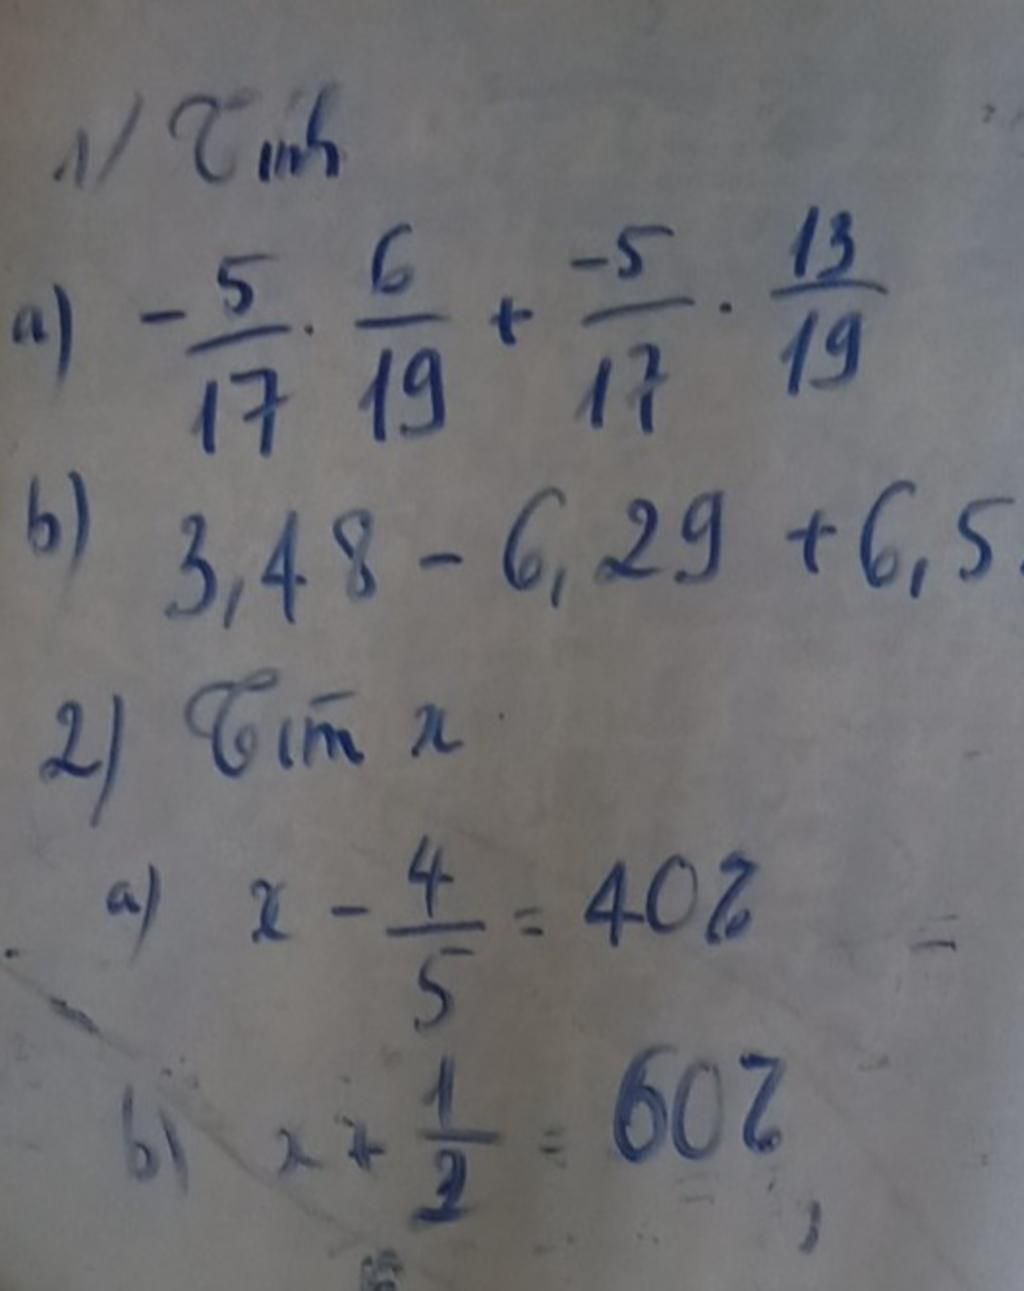 1/ Tính
a) - 5/17 . 6/19 + -5/17 . 13/19
b) 3,48 - 6,29 + 6,5
2) Tìm x
a) x - 4/5 = 40%
b) x + 1/2 = 60%